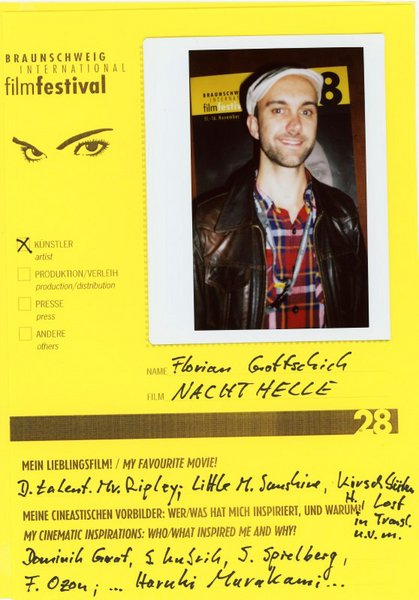 BRAUNSCHWEIG
INTERNATIONAL
filmfestival
BRAUNSCHWEIG
INTERNATIONAL
filmfestiv
8
11.-16. November
X KÜNSTLER
artist
PRODUKTION/VERLEIH
production/distribution
PRESSE
press
ANDERE
others
NAME Florian Gottschick
FILM NACHTHELLE
28
MEIN LIEBLINGSFILM! / MY FAVOURITE MOVIE!
D. talent. Mr. Ripley; Little M. Sunshine, Kirschblüten
H., Lost
in Transl.
u.v.m.
MEINE CINEASTISCHEN VORBILDER: WER/WAS HAT MICH INSPIRIERT, UND WARUM?
MY CINEMATIC INSPIRATIONS: WHO/WHAT INSPIRED ME AND WHY!
Dominik Graf, S. Kubrik, S. Spielberg,
F. Ozon; ... Haruki Murakami...